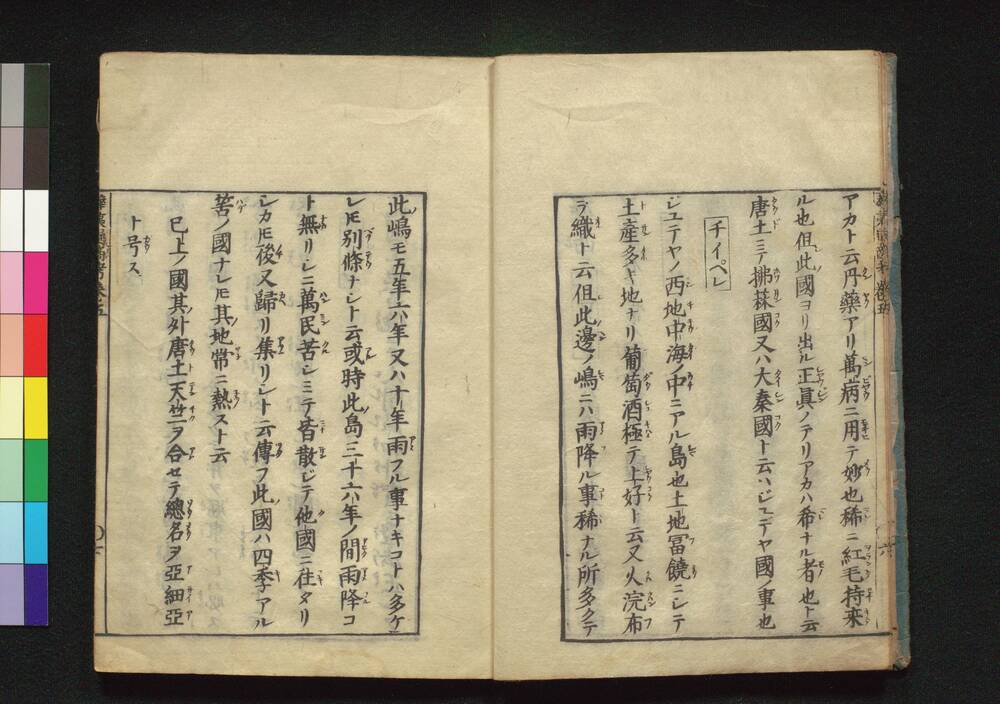 アカト云丹藥アリ萬病ニ用テ妙也稀ニ紅毛持来
ル也但此國ヨリ出ル正眞ノテリアカハ希ナル者也ト云
唐土ニテ拂菻國又ハ大秦國ト云ハジユデヤ國ノ事也
チイペレ
ジユテヤノ西地中海ノ中ニアル島也土地冨饒ニシテ
土産多キ地ナリ葡萄酒極テ上好ト云又火浣布
ヲ織ト云但此邊ノ嶋ニハ雨降ル事稀ナル所多クテ
此嶋モ五年六年又ハ十年雨フル事ナキコトハ多ケ
レ𪜈別條ナシト云或時此島三十六年ノ間雨降コ
ト無リシニ萬民苦シミテ皆散ジテ他國ニ往タリ
シカ𪜈後又歸リ集リシト云傳フ此國ハ四季アル
筈ノ國ナレ𪜈其地常ニ熱スト云
已上ノ國其外唐土天竺ヲ合セテ總名ヲ亞細亞
ト号ス